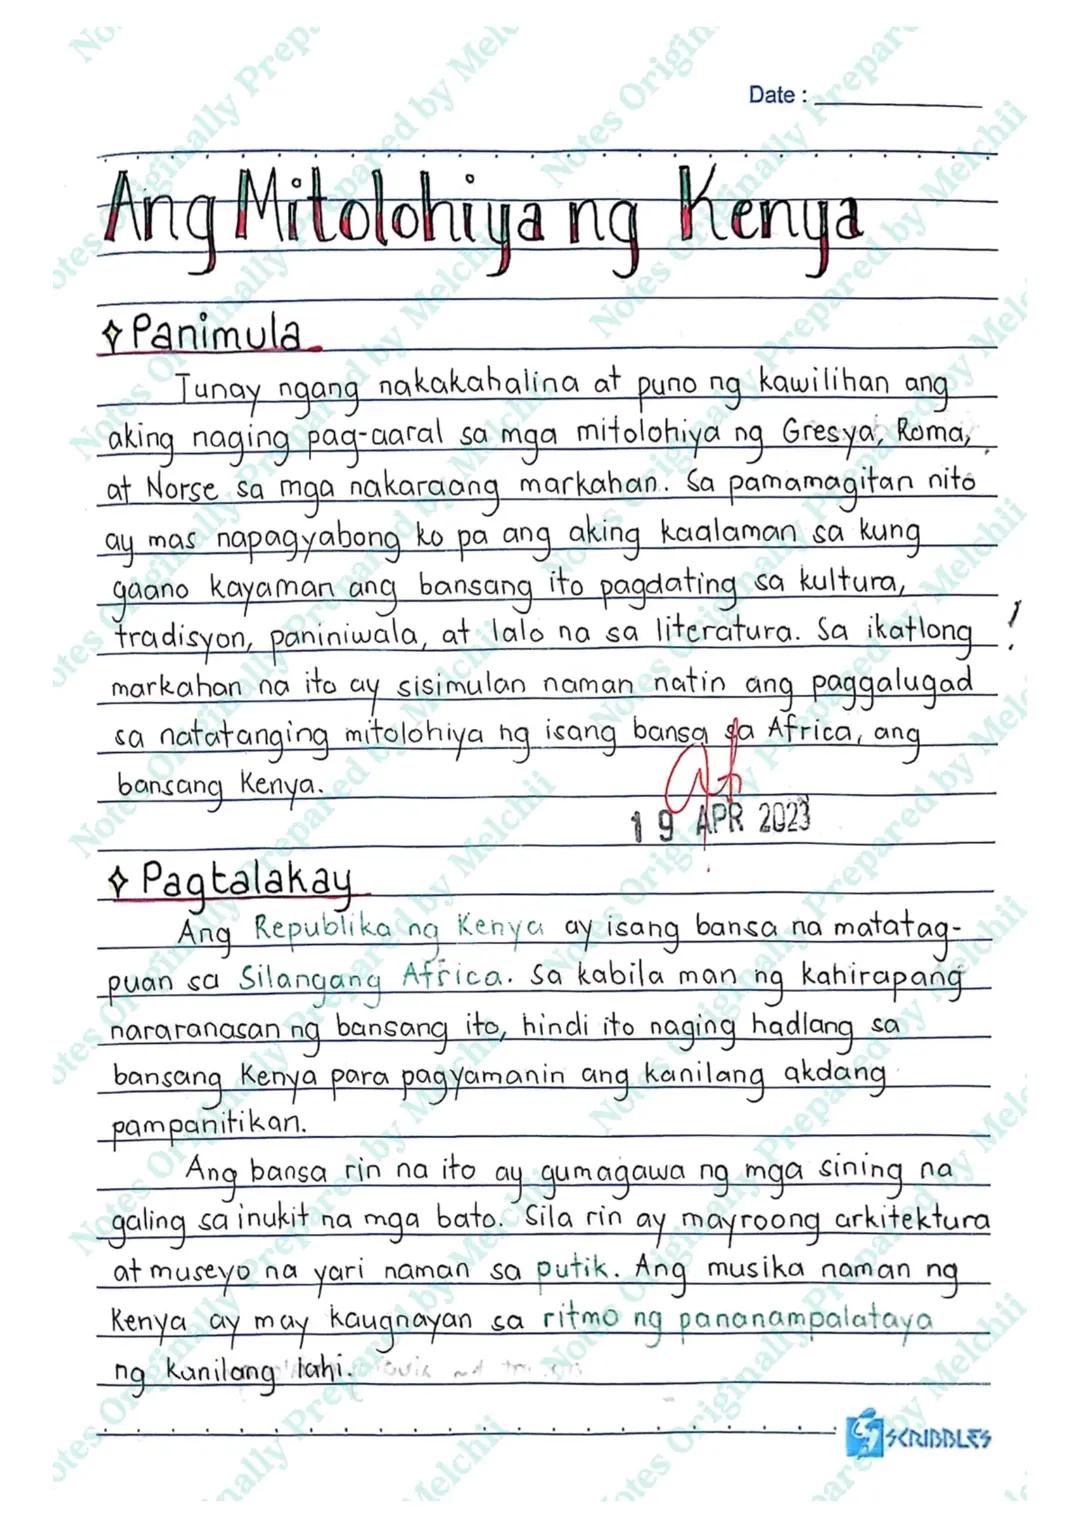 Date :
Ang Mitolohiya ng Kenya
Panimula
Tunay ngang nakakahalina at puno ng kawilihan ang
aking naging pag-aaral sa mga mitolohiya ng Gresya, Roma,
at Norse sa mga nakaraang markahan. Sa pamamagitan nito
ay mas napagyabong ko pa ang aking kaalaman sa kung
gaano kayaman ang bansang ito pagdating sa kultura,
tradisyon, paniniwala, at lalo na sa literatura. Sa ikatlong
markahan na ito ay sisimulan naman natin ang paggalugad
sa natatanging mitolohiya ng isang bansa sa Africa, ang
bansang Kenya.
19 APR 2023
Pagtalakay
Ang Republika ng Kenya ay isang bansa na matatag-
puan sa Silangang Africa. Sa kabila man ng kahirapang
nararanasan ng bansang ito, hindi ito naging hadlang sa
bansang Kenya para pagyamanin ang kanilang akdang
pampanitikan.
Ang bansa rin na ito ay gumagawa ng mga sining na
galing sa inukit na mga bato. Sila rin ay mayroong arkitektura
at museyo na yari naman sa putik. Ang musika naman ng
Kenya ay may kaugnayan sa ritmo ng pananampalataya
ng kanilang lahi.
SCRIBBLES
Notes Originally Prepared by Melchii